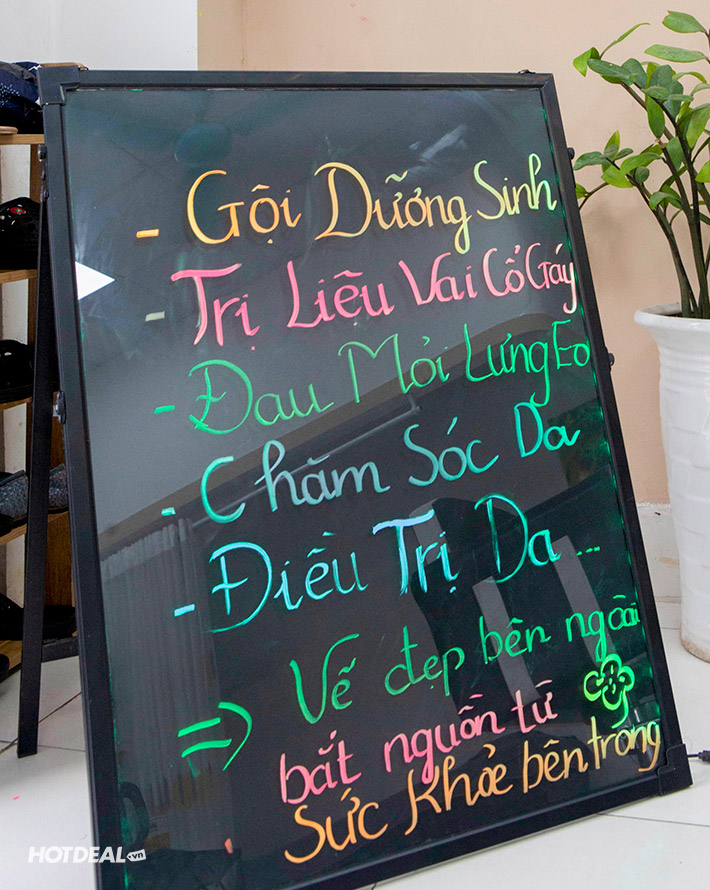 - Gội Dưỡng Sinh
- Trị Liệu Vai Cổ Gáy
- Đau Mỏi Lưng Eo
- Chăm Sóc Da
- Điều Trị Da...
⇒ Vẽ đẹp bên ngoài
bắt nguồn từ
Sức Khỏe bên trong
HOTDEAL.vn